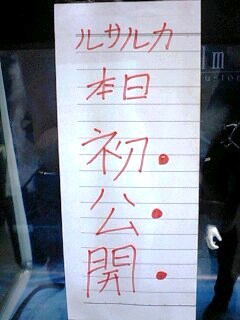 ルサルカ
本日
初
公
開
lm